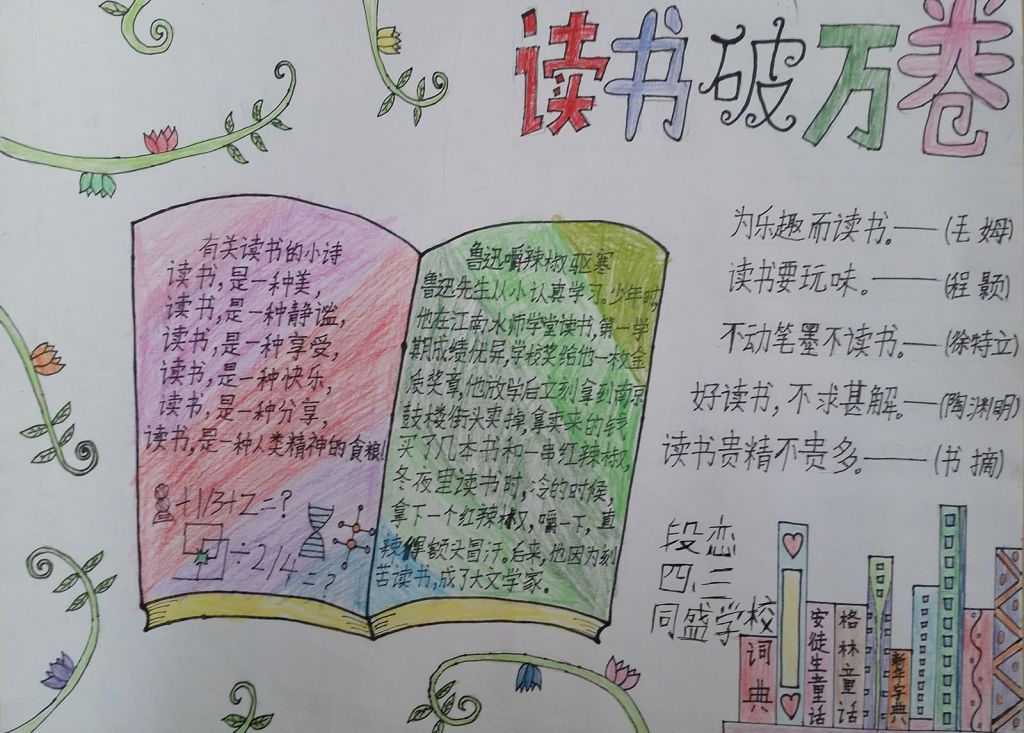 读书破万卷
有关读书的小诗
读书,是一种美,
读书,是一种静谧,
读书,是一种享受,
读书,是一种快乐,
读书,是一种分享,
读书,是一种人类精神的食粮!
+1/3+2=?
÷2/4=?
鲁迅嚼辣椒驱寒
鲁迅先生从小认真学习。少年时,
他在江南水师学堂读书,第一学
期成绩优异,学校奖给他一枚金
质奖章,他放学后立刻拿到南京
鼓楼街头卖掉,拿卖来的钱
买了几本书和一串红辣椒,
冬夜里读书时,冷的时候,
拿下一个红辣椒,嚼一下,直
辣得额头冒汗。后来,他因为刻
苦读书,成了大文学家。
为乐趣而读书。——(毛姆)
读书要玩味。——(程颢)
不动笔墨不读书。——(徐特立)
好读书,不求甚解。——(陶渊明)
读书贵精不贵多。——(书摘)
段恋
四.三
同盛学校
词典
安徒生童话
格林童话
新华字典